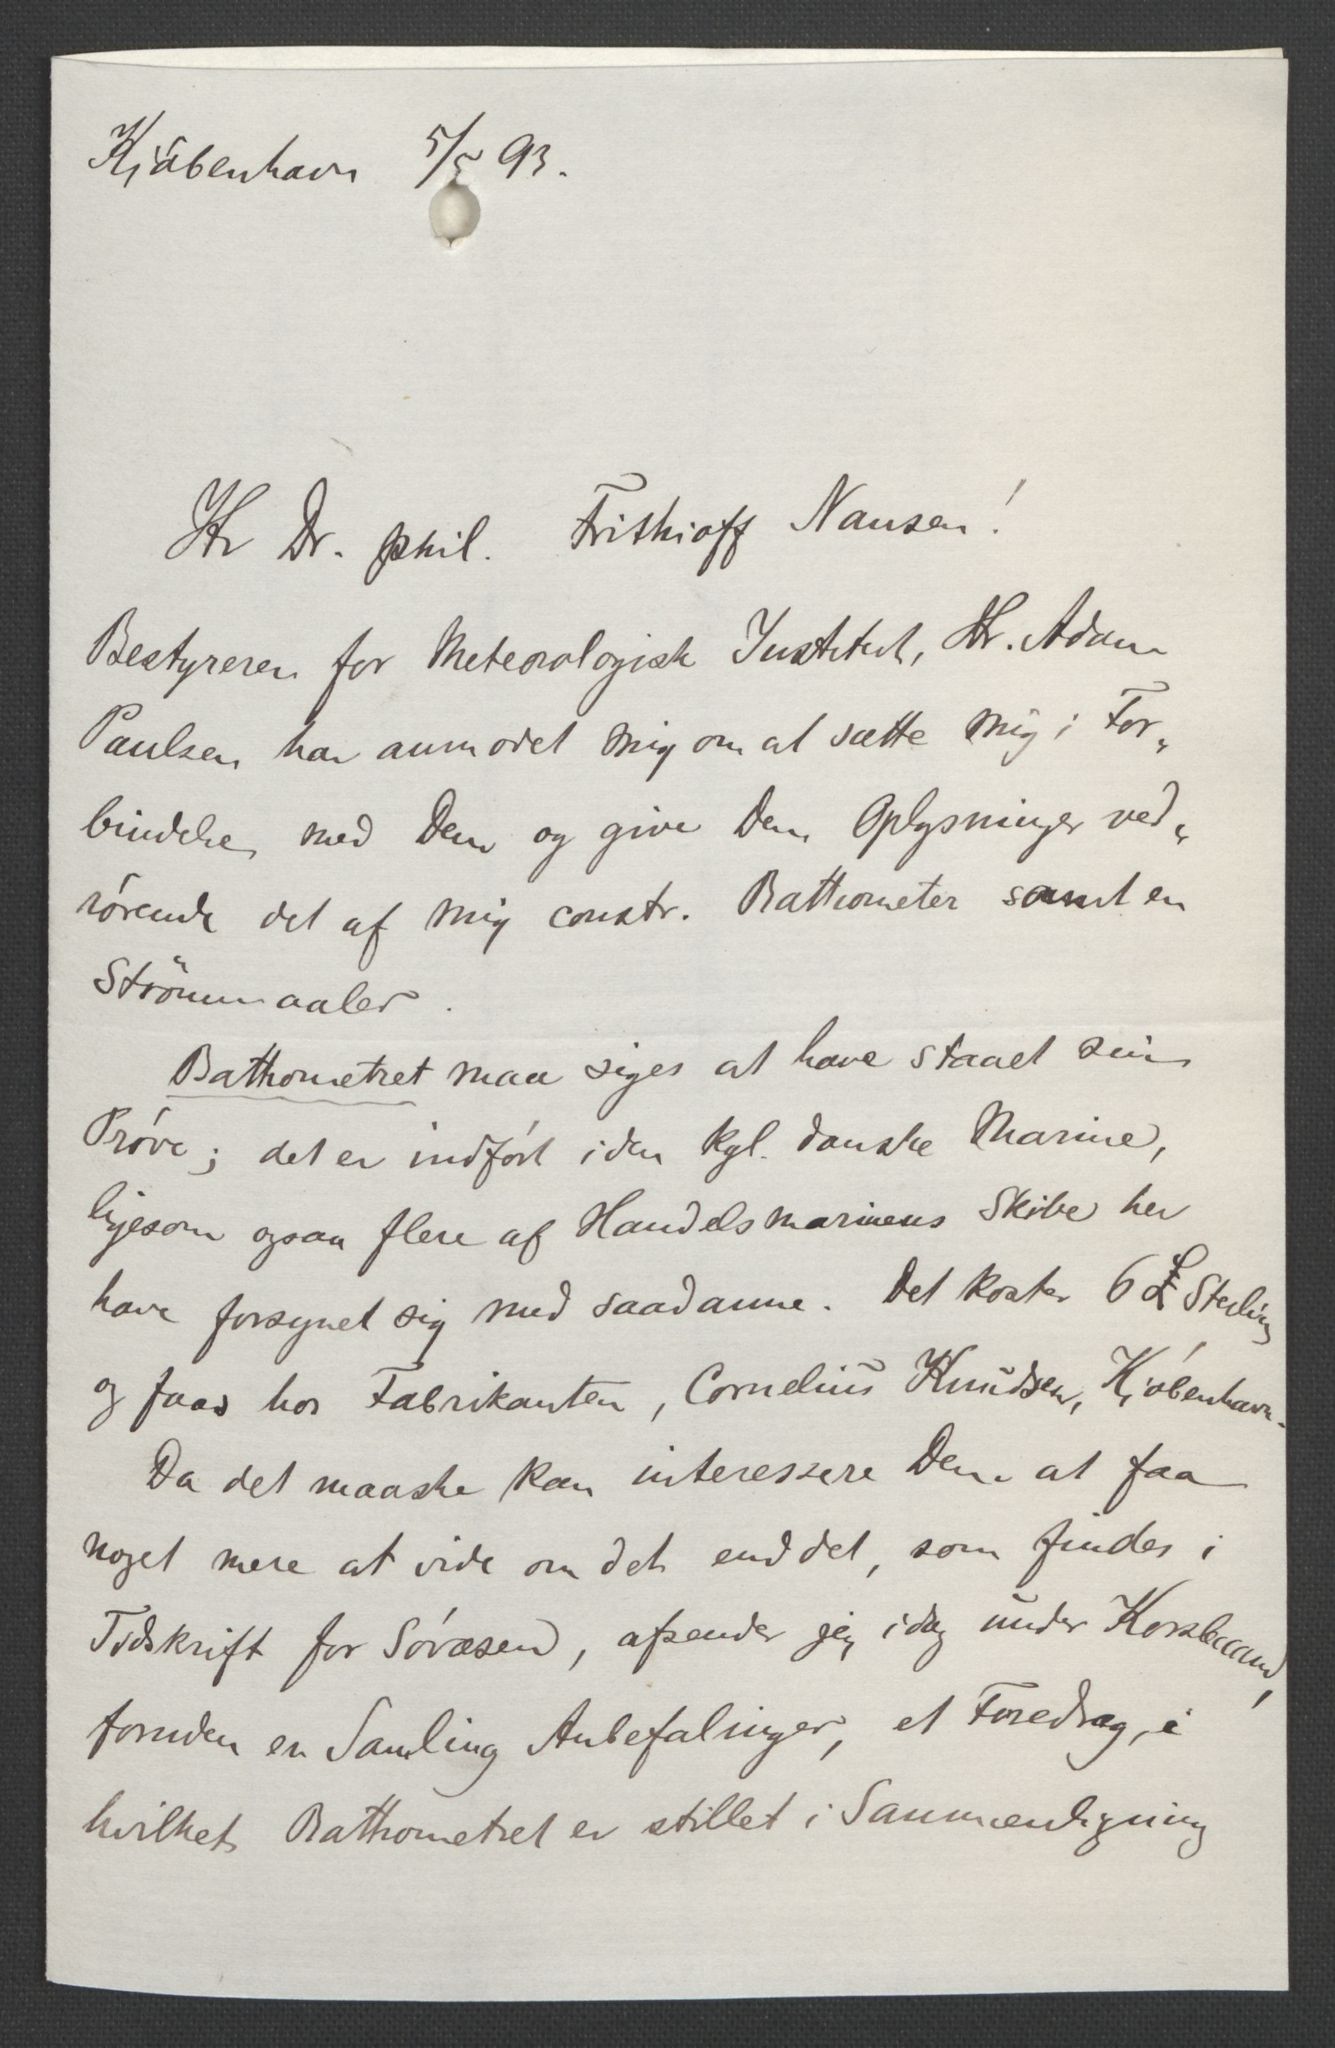 Kjöbenhavn 5/5 93.
Hr Dr. phil. Frithioff Nansen!
Bestyreren for Meteorologisk Institut, Hr. Adam
Paulsen har anmodet mig om at sætte mig i For„
bindelse med Dem og give Dem Oplysninger ved„
rörende det af mig constr. Bathometer samt en
Strömmaaler.
Bathometret maa siges at have staaet sin
Próve; det er indfört i den kgl. danske Marine,
ligesom ogsaa flere af Handelsmarinens Skibe her
have forsynet sig med saadanne. Det koster 6 £ Sterling
og faas hos Fabrikanten, Cornelius Knudsen, Kjóbenhavn.
Da det maaske kan interessere Dem at faa
noget mere at vide om det end det, som findes i
Tidskrift for Sóvæsen, afsender jeg idag under Korsbaand,
foruden en Samling Anbefalinger, et Foredrag, i
hvilket Bathometret er stillet i Sammenligning